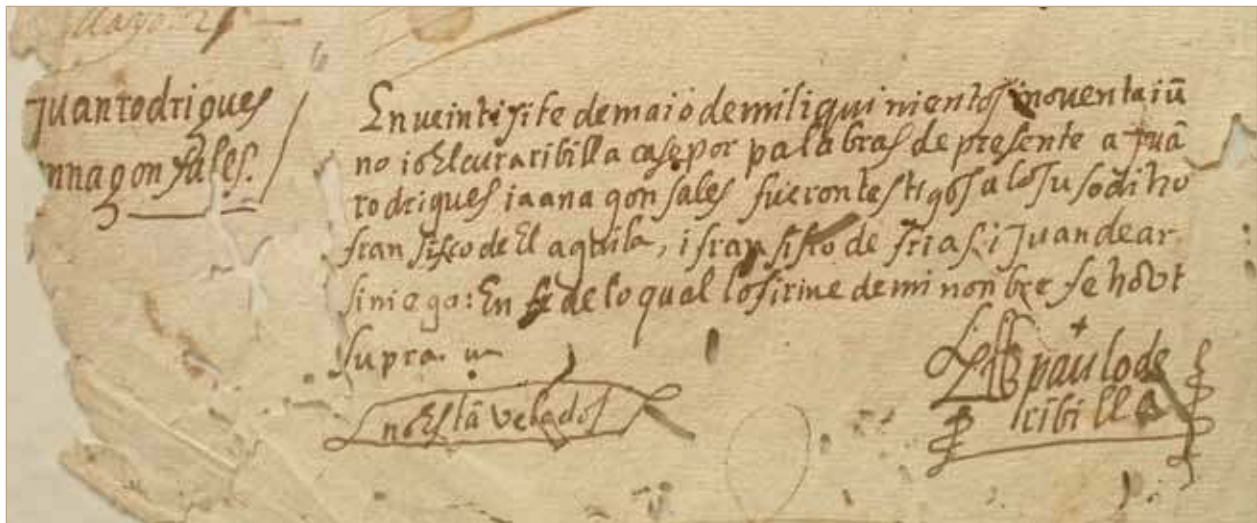 Mayo. 27
Juan rodrigues
anna gonsales.
En veinti site de maio de mil i quinientos i noventa i ū
no io El cura ribilla case por palabras de presente a Juā
rodrigues i a ana gonsales fueron testigos a lo susodicho
fransisco de El aguila, i fransisco de frias i Juan de ar
siniega: En fe de lo qual lo firme de mi nonbre fecho vt
supra.
no Estā velados
paulo de
ribilla